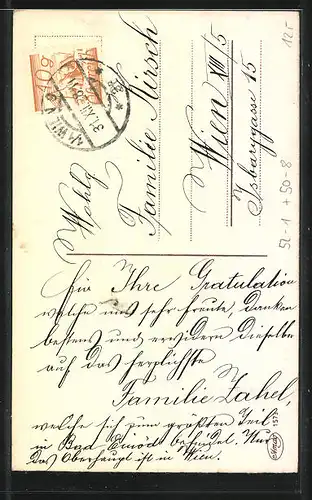 10g
12.-
52-1 + 50-8
Wohlg
Familie Kirsch
Wien XIII/5
Isbarygasse 15
Für Ihre Gratulation
welche uns sehr freute, danken
bestens und erwidern dieselbe
auf das herzlichste
Familie Zahel,
welche sich zum größten Teil
in Bad Einöd befindet. Nur
das Oberhaupt ist in Wien.